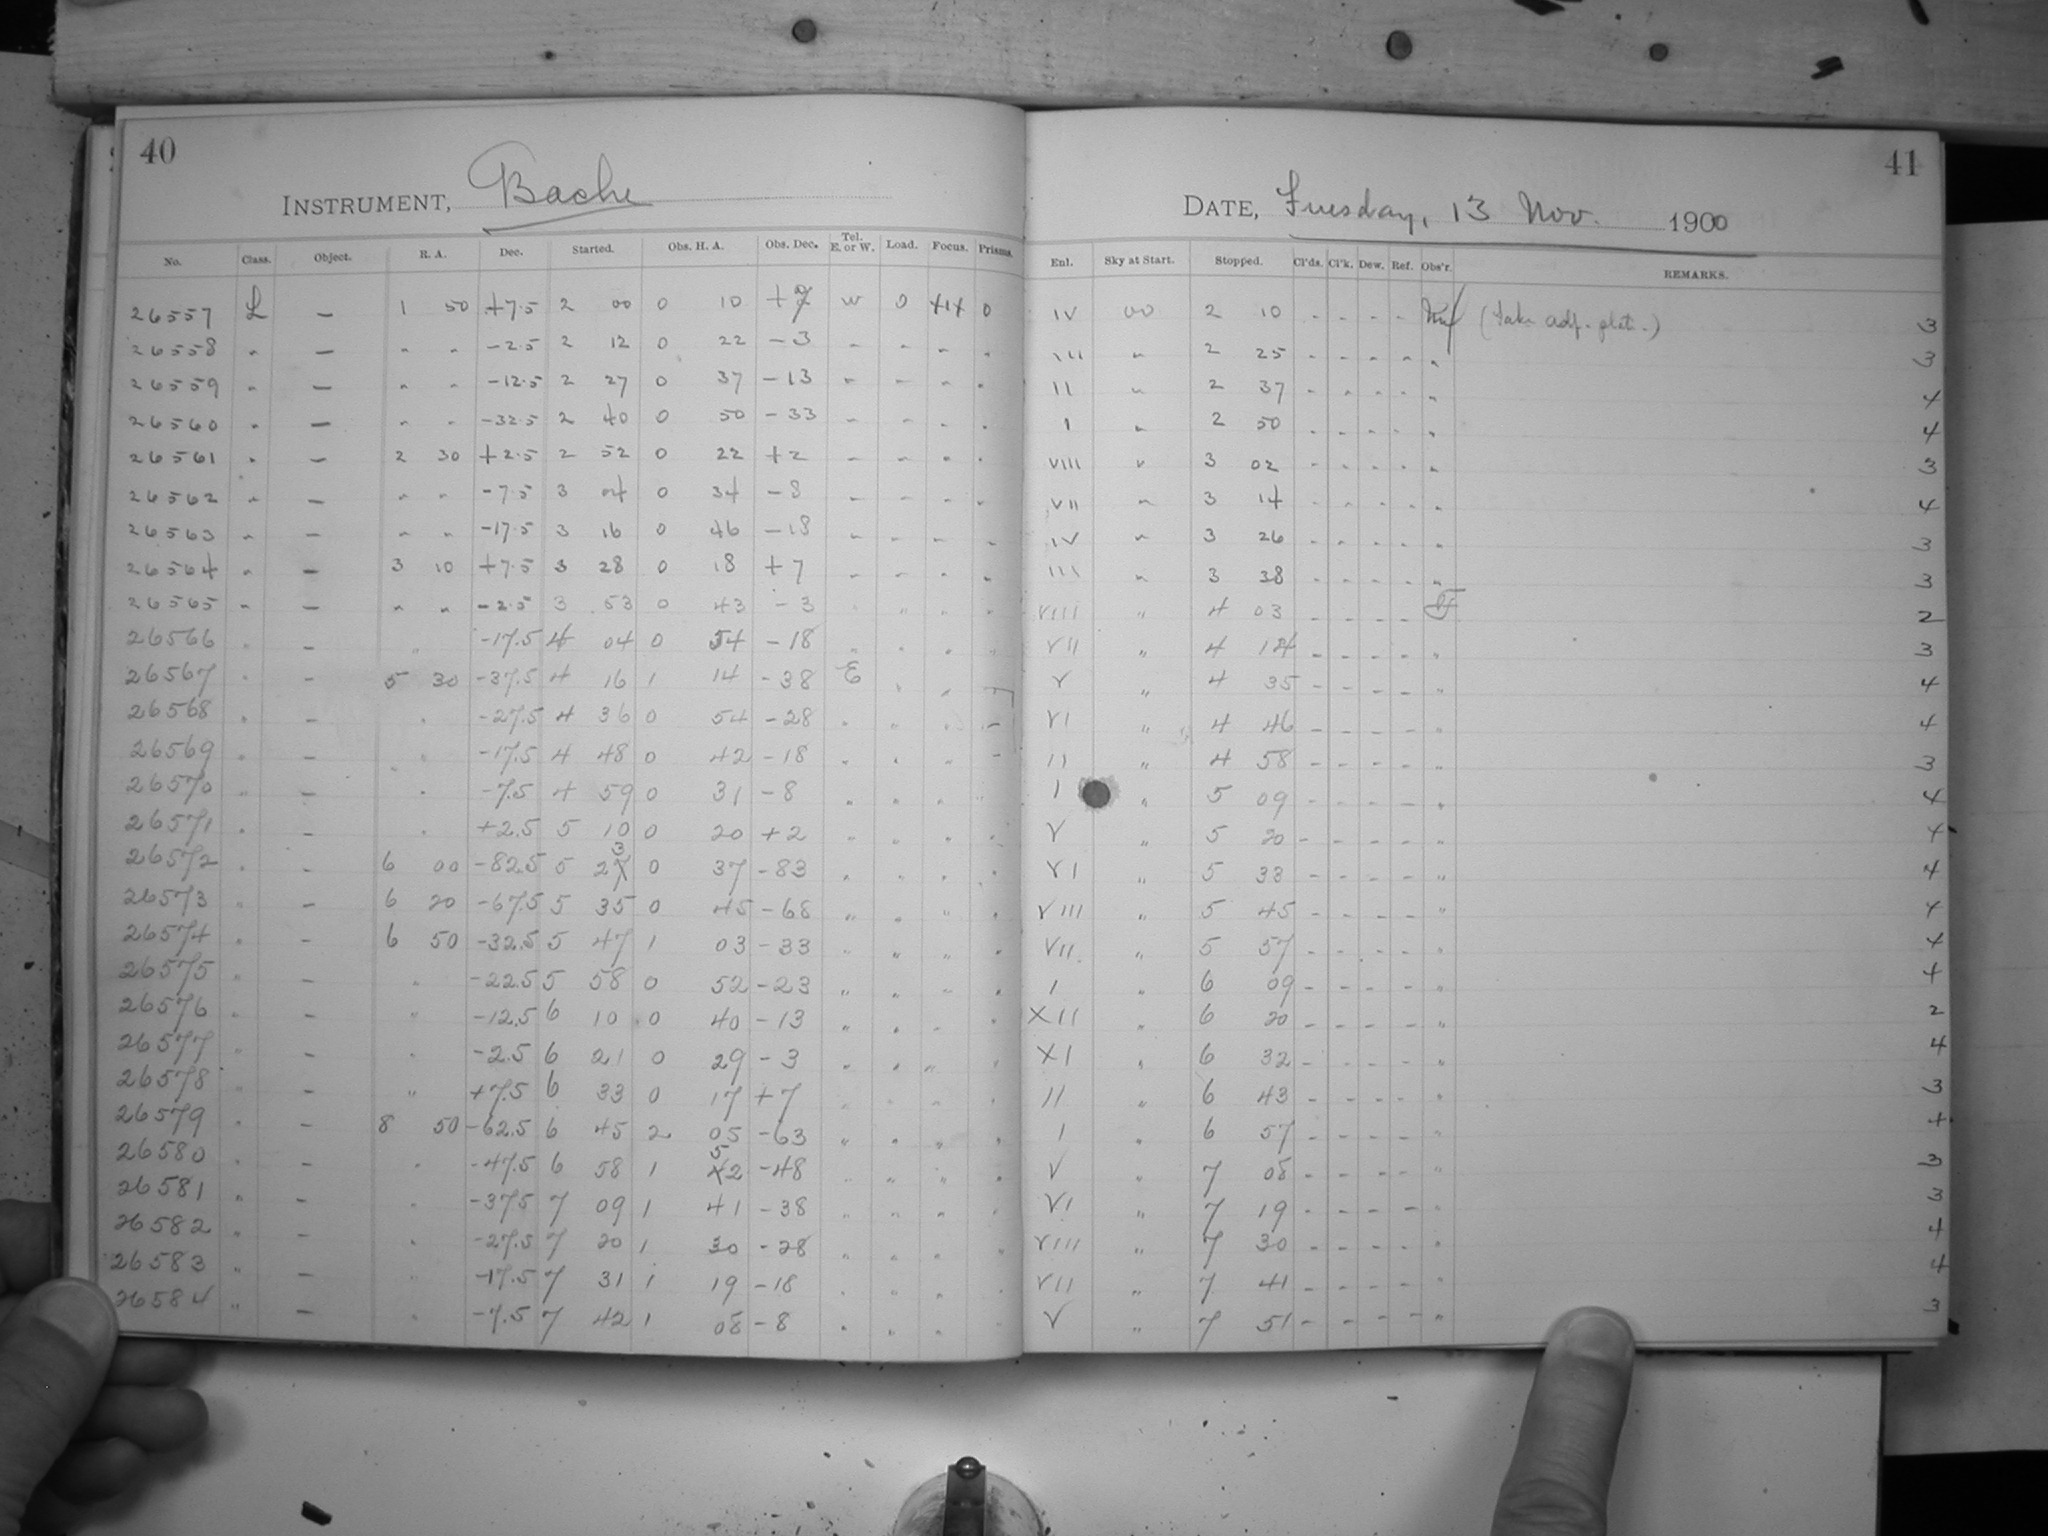 40
INSTRUMENT, Bache
No. Class. Object. R. A. Dec. Started. Obs. H. A. Obs. Dec. Tel. E. or W. Load. Focus. Prisms.
26557 L — 1 50 +7.5 2 00 0 10 +7 W 0 0
26558 " — " " -2.5 2 12 0 22 -3 " " " "
26559 " — " " -12.5 2 27 0 37 -13 " " " "
26560 " — " " -32.5 2 40 0 50 -33 " " " "
26561 " — 2 30 +2.5 2 52 0 22 +2 " " " "
26562 " — " " -7.5 3 04 0 34 -8 " " " "
26563 " — " " -17.5 3 16 0 46 -18 " " " "
26564 " — 3 10 +7.5 3 28 0 18 +7 " " " "
26565 " — " " -2.5 3 53 0 43 -3 " " " "
26566 " — " -17.5 4 04 0 54 -18 " " " "
26567 " — 5 30 -37.5 4 16 1 14 -38 E " "
26568 " — " -27.5 4 36 0 54 -28 " " " —
26569 " — " -17.5 4 48 0 42 -18 " " " —
26570 " — " -7.5 4 59 0 31 -8 " " " "
26571 " — " +2.5 5 10 0 20 +2 " " " "
26572 " — 6 00 -82.5 5 23 0 37 -83 " " " "
26573 " — 6 20 -67.5 5 35 0 45 -68 " " " "
26574 " — 6 50 -32.5 5 47 1 03 -33 " " " "
26575 " — " -22.5 5 58 0 52 -23 " " " "
26576 " — " -12.5 6 10 0 40 -13 " " " "
26577 " — " -2.5 6 21 0 29 -3 " " " "
26578 " — " +7.5 6 33 0 17 +7 " " " "
26579 " — 8 50 -62.5 6 45 2 05 -63 " " " "
26580 " — " -47.5 6 58 1 52 -48 " " " "
26581 " — " -37.5 7 09 1 41 -38 " " " "
26582 " — " -27.5 7 20 1 30 -28 " " " "
26583 " — " -17.5 7 31 1 19 -18 " " " "
26584 " — " -7.5 7 42 1 08 -8 " " "
41
DATE, Tuesday, 13 Nov. 1900
Enl. Sky at Start. Stopped. Cl'ds. Cl'k. Dew. Ref. Obs'r. REMARKS.
IV 00 2 10 - - - - (Take adj. plate.) 3
III " 2 25 - - - - " 3
II " 2 37 - - - - " 4
I " 2 50 - - - - " 4
VIII " 3 02 - - - - " 3
VII " 3 14 - - - - " 4
IV " 3 26 - - - - " 3
III " 3 38 - - - - " 3
VIII " 4 03 - - - - 2
VII " 4 14 - - - - " 3
V " 4 35 - - - - " 4
VI " 4 46 - - - - " 4
II " 4 58 - - - - " 3
I " 5 09 - - - - " 4
V " 5 20 - - - - " 4
VI " 5 33 - - - - " 4
VIII " 5 45 - - - - " 4
VII " 5 57 - - - - " 4
I " 6 09 - - - - " 4
XII " 6 20 - - - - " 2
XI " 6 32 - - - - " 4
II " 6 43 - - - - " 3
I " 6 57 - - - - " 4
V " 7 08 - - - - " 3
VI " 7 19 - - - - " 3
VIII " 7 30 - - - - " 4
VII " 7 41 - - - - " 4
V " 7 51 - - - - " 3